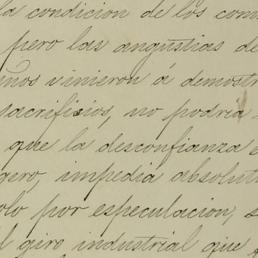 la condicion de los com
pero las angustias de
nos vinieron á demostr
sacrificios, no podria
que la desconfianza e
gero, impedia absolut
olo por especulacion, s
l giro industrial que